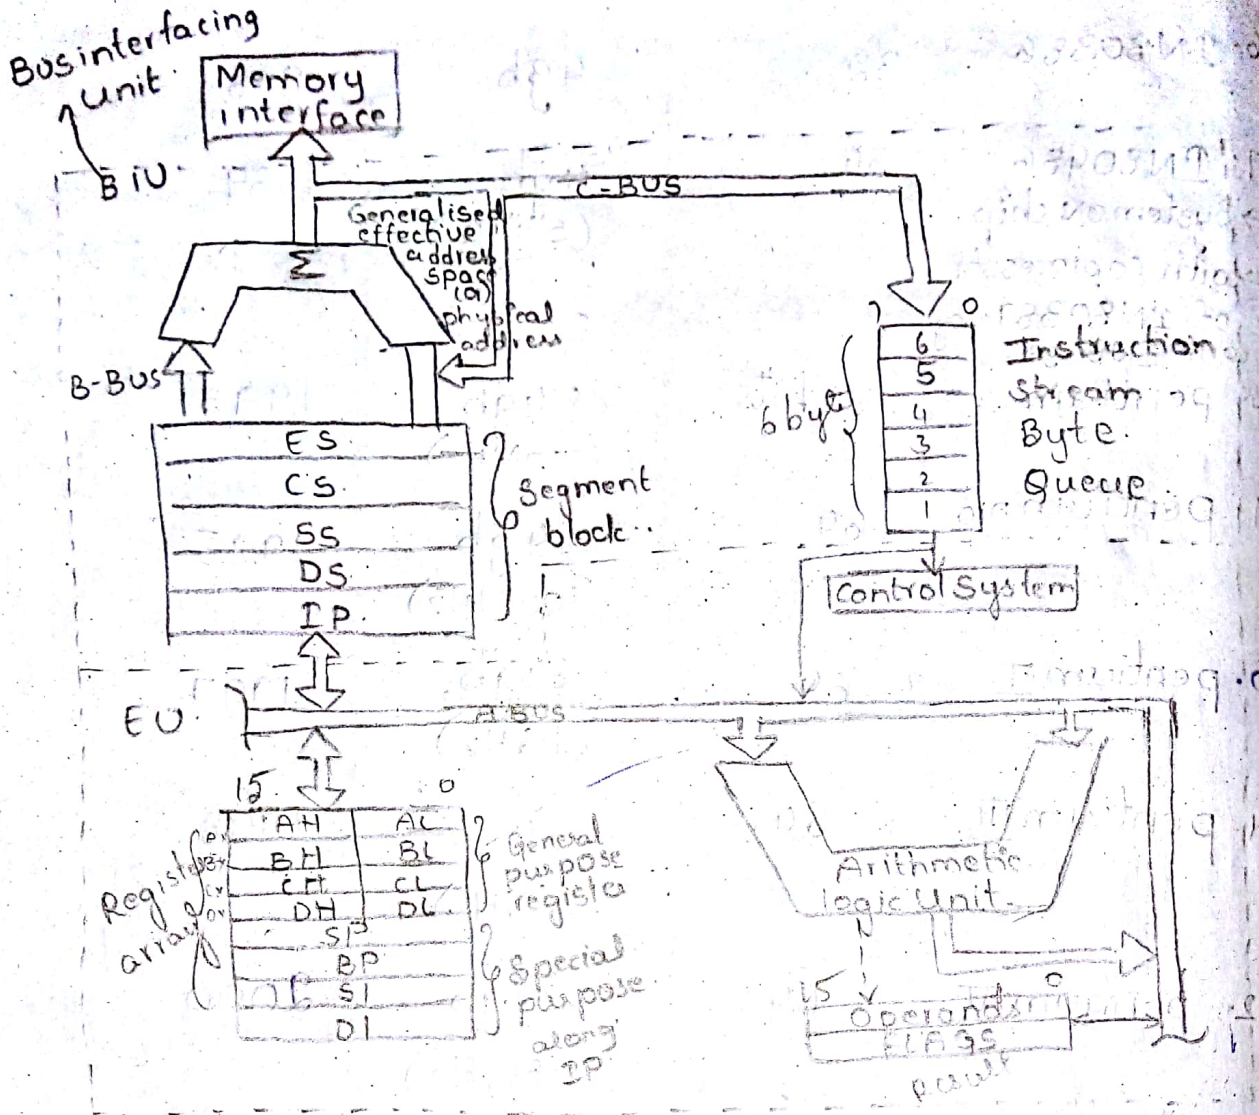 Bus interfacing
unit
Memory
interface
BIU
C-BUS
Generalised
effective
address
spac
(a)
physical
address
Σ
B-BUS
7 0
6
5
4
3
2
1
6 byte
Instruction
Stream
Byte.
Queue.
ES.
CS.
SS
DS.
IP.
Segment
block..
Control System
EU.
A BUS
15. 0
AH AL
BH BL
CH CL
DH DL
SP
BP
SI
DI
Register
array
General
purpose
register
Special
purpose
along
IP
Arithmetic
logic Unit.
15 0
Operands
FLAGS
result